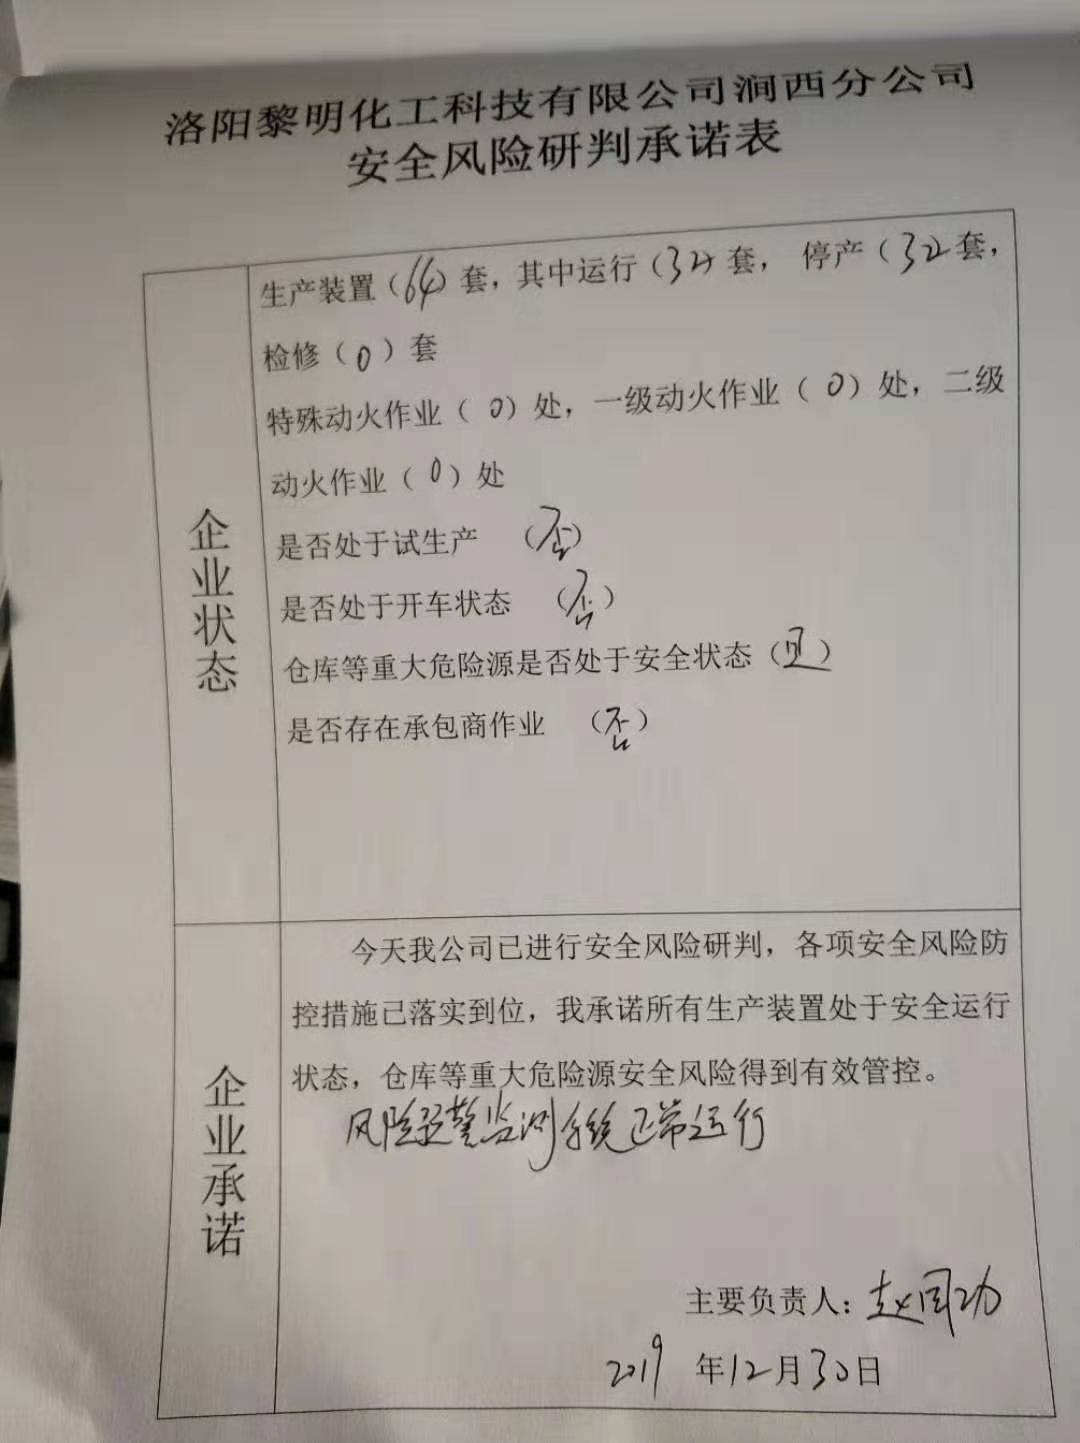 洛阳黎明化工科技有限公司涧西分公司
安全风险研判承诺表
企业状态
生产装置（64）套，其中运行（32）套， 停产（32套，
检修（0）套
特殊动火作业（ 0）处，一级动火作业（ 0）处，二级
动火作业（0）处
是否处于试生产 （否）
是否处于开车状态 （否）
仓库等重大危险源是否处于安全状态（是）
是否存在承包商作业 （否）
企业承诺
今天我公司已进行安全风险研判，各项安全风险防
控措施已落实到位，我承诺所有生产装置处于安全运行
状态，仓库等重大危险源安全风险得到有效管控。
风险预警监测系统正常运行
主要负责人：赵国功
2019 年12月30日